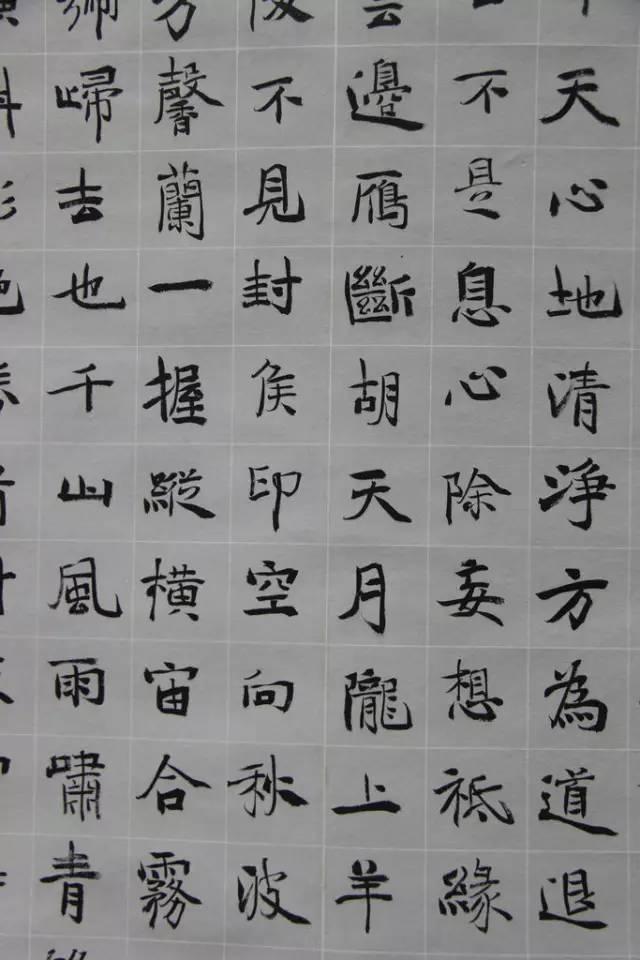 天心地清淨方為道退
不是息心除妄想祗緣
雲邊鴈斷胡天月隴上羊
陵不見封侯印空向秋波
方馨蘭一握縱橫宙合霧
歸去也千山風雨嘯青